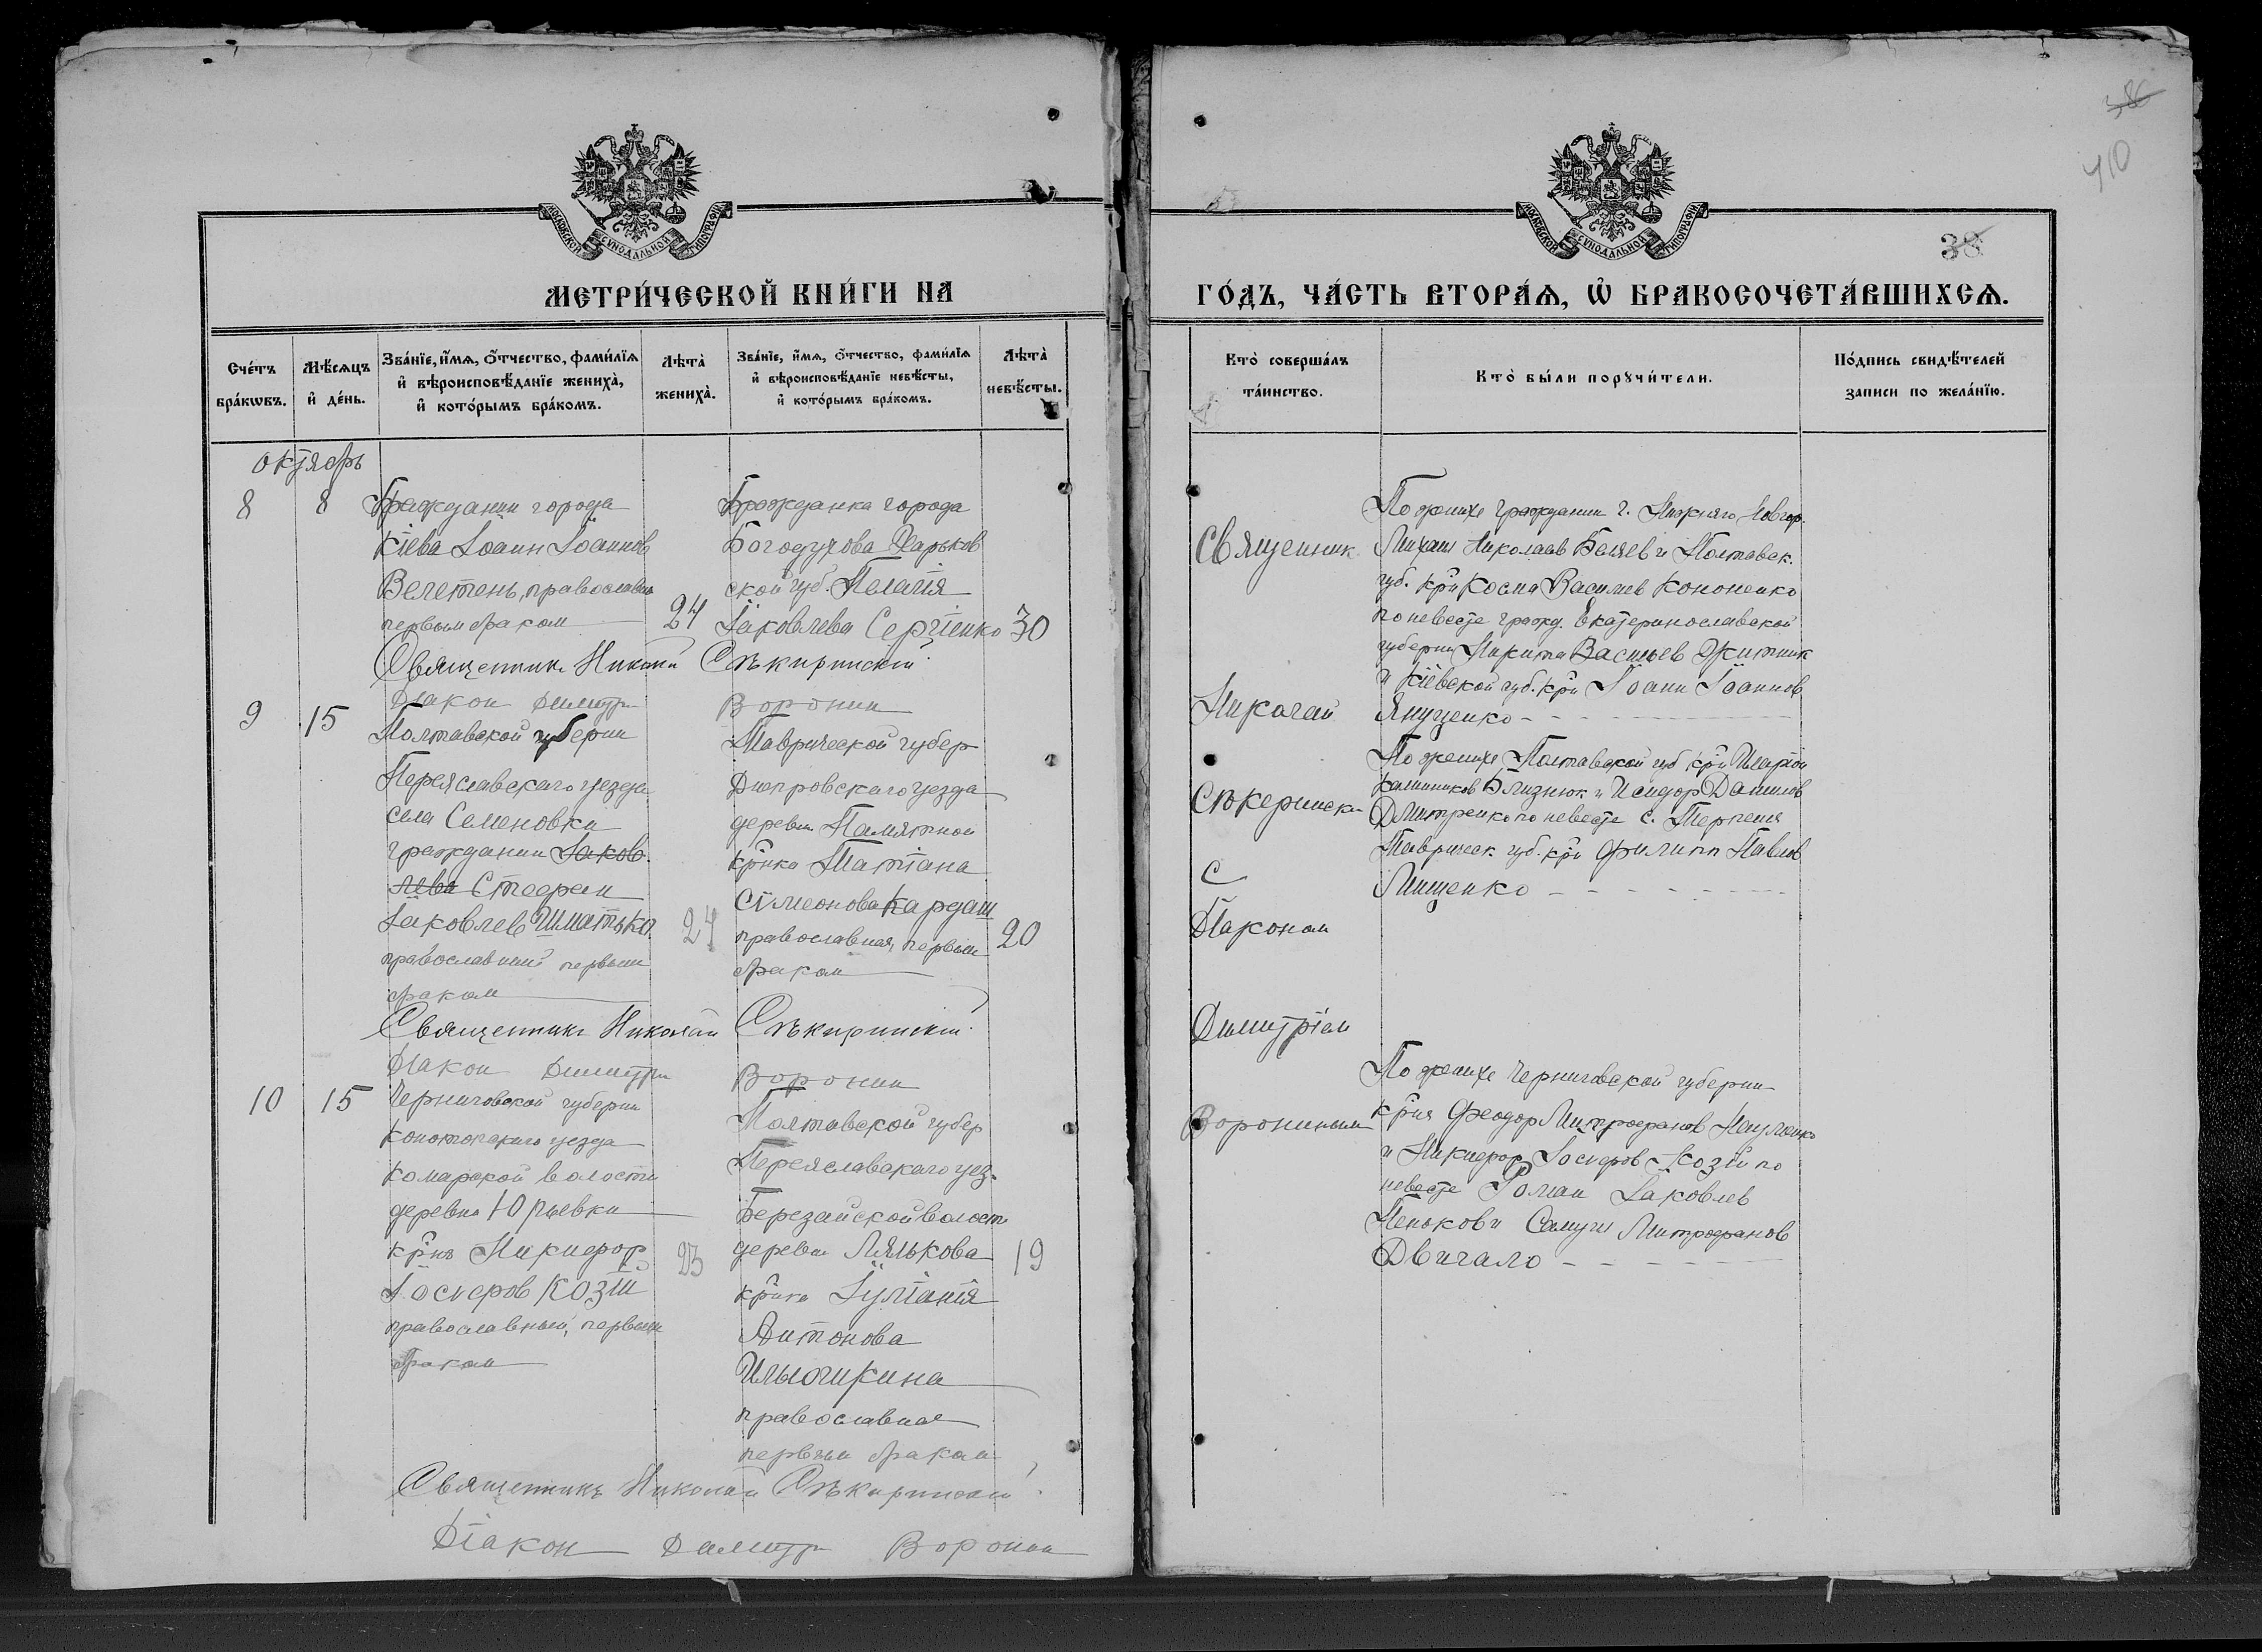 МОСКОВСКОЙ СѴНОДАЛЬНОЙ ТИПОГРАФІИ
МЕТРИ́ЧЕСКОЙ КНИ́ГИ НА
Сче́тъ бра́кѡвъ.
Мѣ́сѧцъ и҆ де́нь.
Зва́нїе, и҆́мѧ, ѻ҆́тчество, фами́лїѧ и҆ вѣроисповѣ́данїе жениха̀, и҆ кото́рымъ бра́комъ.
Лѣта̀ жениха̀.
Зва́нїе, и҆́мѧ, ѻ҆́тчество, фами́лїѧ и҆ вѣроисповѣ́данїе невѣ́сты, и҆ кото́рымъ бра́комъ.
Лѣта̀ невѣ́сты.
октябрь
8
8
Гражданин города
Кіева Іоанн Іоаннов
Велетень, православн
первым браком
24
Гражданка города
Богодухова Харьков
ской губ. Пелагія
Іаковлева Сергіенко
30
Священник Николай Сѣкиринскій
Діакон Димитри Воронин
9
15
Полтавской губернии
Переяславскаго уезда
села Семеновки
гражданин Іаков
лева Стефан
Іаковлев Шматько
православный первым
браком
24
Таврической губер
Днепровскаго уезда
деревни Памятной
кр̂нка Татіана
Сімеонова Кардаш
православная, первым
браком
20
Священник Николай Сѣкиринскій
Діакон Димитри Воронин
10
15
Черниговской губернии
Конотопскаго уезда
волости
деревни Юрьевки
кр̂нъ Никифор
Іосифов Козій
православный, первым
браком
23
Полтавской губер
Переяславскаго уез.
волости
деревни Лялькова
кр̂нка Іуліанія
Антонова
православная
первым браком
19
Священникъ Николай Сѣкиринскій
Діакон Димитри Воронин
386
410
МОСКОВСКОЙ СѴНОДАЛЬНОЙ ТИПОГРАФІИ
38
ГО́ДЪ, ЧА́СТЬ ВТОРА́Ѧ, Ѡ҆ БРАКОСОЧЕТА́ВШИХСѦ.
Кто̀ соверша́лъ та́инство.
Кто̀ бы́ли порꙋчи́тели.
По́дпись свидѣ́телей записи по жела́нїю.
Священник
Николай
С
Діаконом
Димитріем
Ворониным
По женихе гражданин г. Нижняго Новгор.
Михаил Николаев Беляев и Полтавск.
губ. кр̂н Косма Васильев Кононенко
по невесте гражд. Екатеринославской
губернии Никита Васильев Житник
и Кіевской губ. кр̂н Іоанн Іоаннов
Янущенко
По женихе Полтавской губ кр̂н Иларіон
Близнюк и Исидор Данилов
Дмитренко по невесте с. Терпения
Таврическ. губ. кр̂н Филипп Павлов
Мищенко
По женихе Черниговской губернии
кр̂не Феодор Митрофанов
и Никифор Іосифов Козій по
невесте Роман Іаковлев
Пеньков и Самуил Митрофанов
Двигало